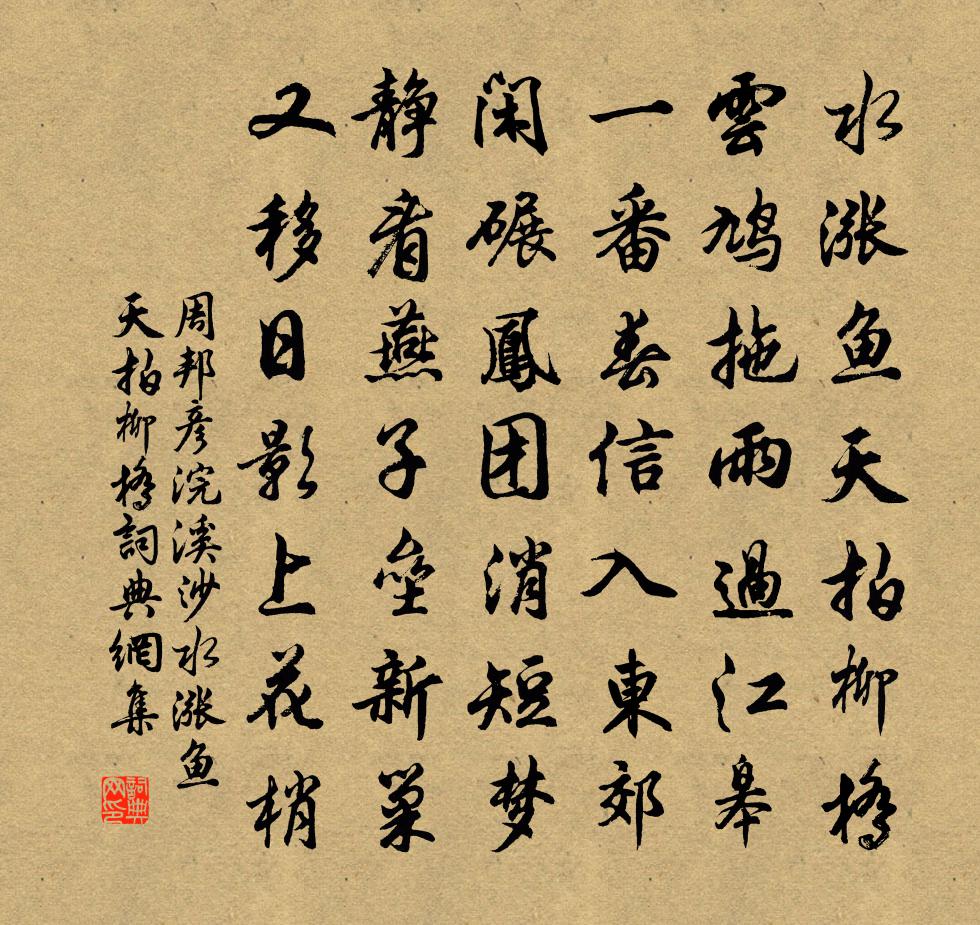 水涨鱼天拍柳橋
雲鸠拖雨過江皋
一番春信入東郊
闲碾鳳团消短梦
静看燕子垒新巢
又移日影上花梢
周邦彦浣溪沙水涨鱼
天拍柳橋詞典網集
詞典网印